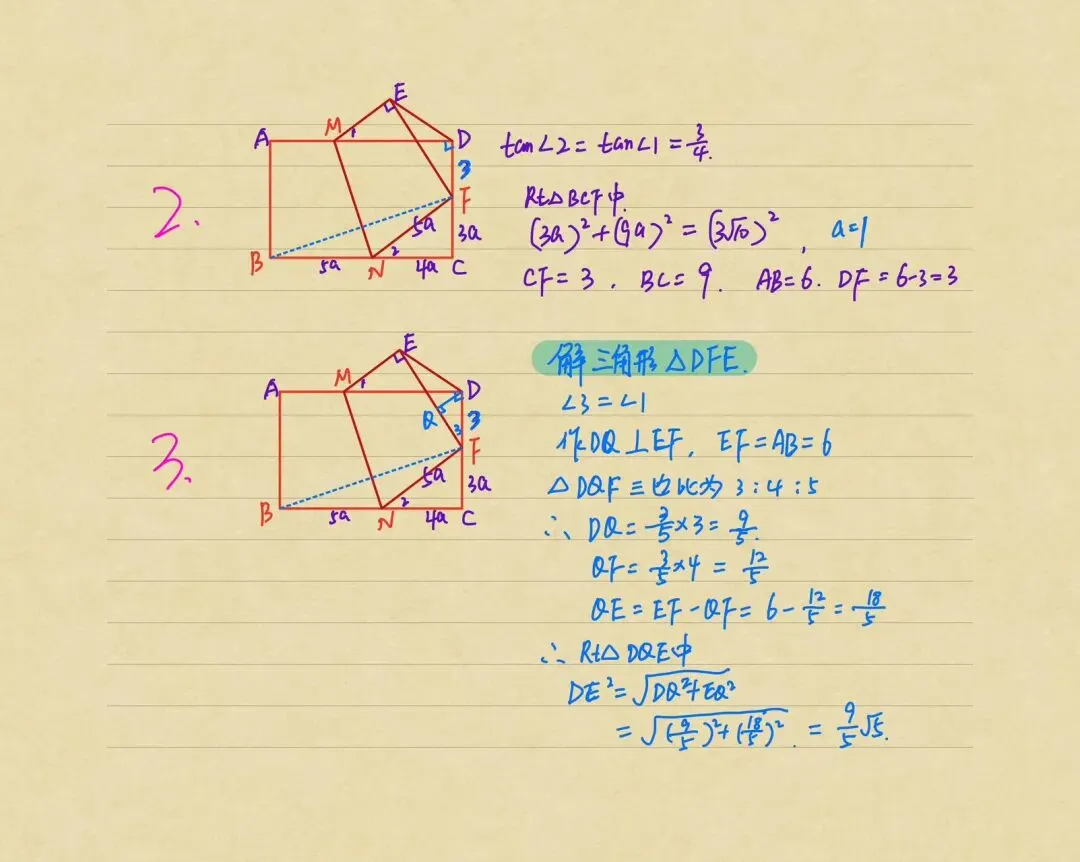 2.
A M 1 E D
3
F
5a 3a
B 5a N 2 4a C
tan∠2 = tan∠1 = 3/4.
Rt△BCF中.
(3a)²+(9a)² = (3√10)², a=1
CF = 3 . BC = 9. AB=6. DF = 6-3=3
3.
A M 1 E D
Q 3 3
F
5a 3a
B 5a N 2 4a C
解三角形△DFE.
∠3 = ∠1
作DQ⊥EF, EF=AB=6
△DQF三边比为 3:4:5
∴ DQ = 3/5×3 = 9/5.
QF = 3/5×4 = 12/5
QE = EF-QF = 6 - 12/5 = 18/5
∴ Rt△DQE中
DE² = √DQ²+EQ²
= √(9/5)²+(18/5)². = 9/5√5.